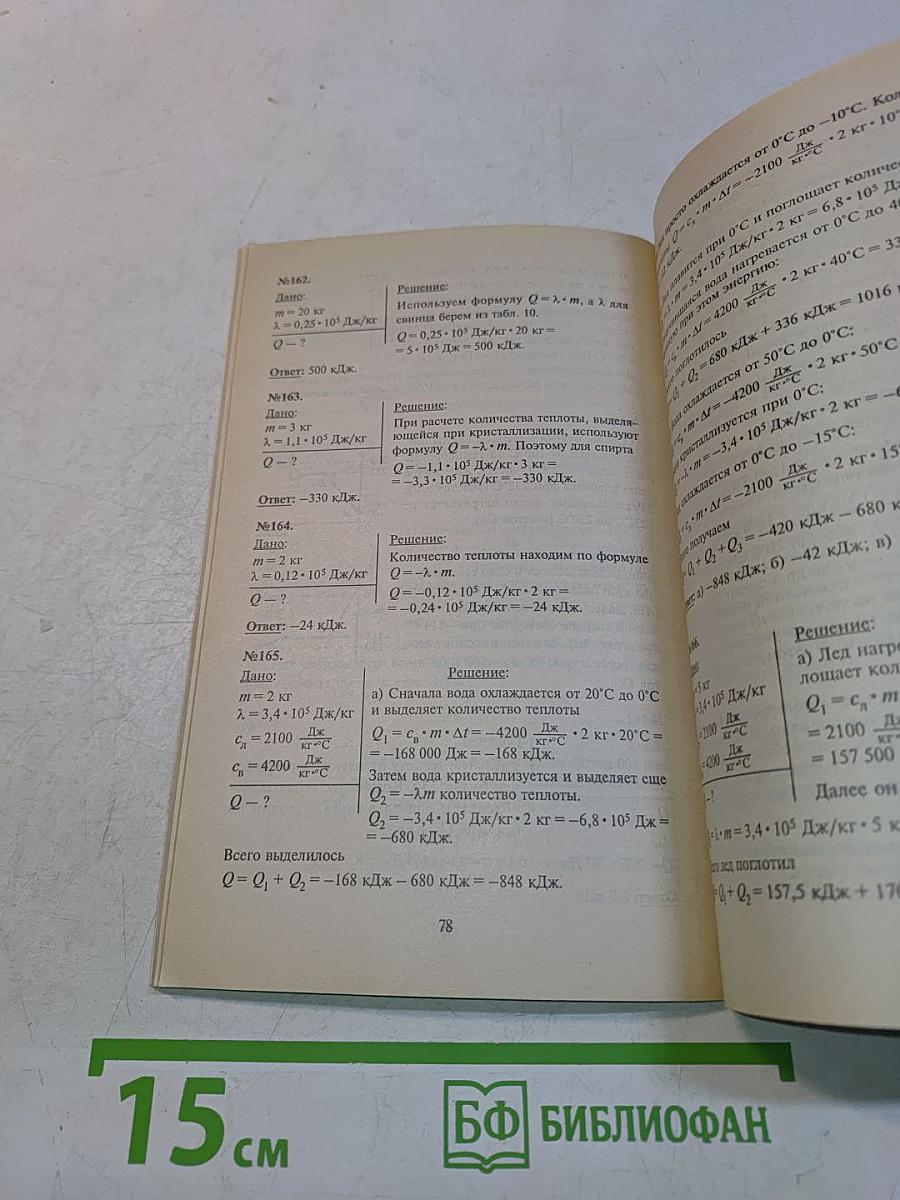 №162.
Дано:
m = 20 кг
λ = 0,25 • 10⁵ Дж/кг
Q — ?
Решение:
Используем формулу Q = λ • m, а λ для
свинца берем из табл. 10.
Q = 0,25 • 10⁵ Дж/кг • 20 кг =
= 5 • 10⁵ Дж = 500 кДж.
Ответ: 500 кДж.
№163.
Дано:
m = 3 кг
λ = 1,1 • 10⁵ Дж/кг
Q — ?
Решение:
При расчете количества теплоты, выделя-
ющейся при кристаллизации, используют
формулу Q = –λ • m. Поэтому для спирта
Q = –1,1 • 10⁵ Дж/кг • 3 кг =
= –3,3 • 10⁵ Дж/кг = –330 кДж.
Ответ: –330 кДж.
№164.
Дано:
m = 2 кг
λ = 0,12 • 10⁵ Дж/кг
Q — ?
Решение:
Количество теплоты находим по формуле
Q = –λ • m.
Q = –0,12 • 10⁵ Дж/кг • 2 кг =
= –0,24 • 10⁵ Дж/кг = –24 кДж.
Ответ: –24 кДж.
№165.
Дано:
m = 2 кг
λ = 3,4 • 10⁵ Дж/кг
cл = 2100 Дж/кг•°C
cв = 4200 Дж/кг•°C
Q — ?
Решение:
а) Сначала вода охлаждается от 20°C до 0°C
и выделяет количество теплоты
Q₁ = cв • m • Δt = –4200 Дж/кг•°C • 2 кг • 20°C =
= –168 000 Дж = –168 кДж.
Затем вода кристаллизуется и выделяет еще
Q₂ = –λm количество теплоты.
Q₂ = –3,4 • 10⁵ Дж/кг • 2 кг = –6,8 • 10⁵ Дж =
= –680 кДж.
Всего выделилось
Q = Q₁ + Q₂ = –168 кДж – 680 кДж = –848 кДж.
78
просто охлаждается от 0°C до –10°C.
Q = cл • m • Δt = –2100 Дж/кг•°C • 2 кг • 10°
плавится при 0°C и поглощает
• m = 3,4 • 10⁵ Дж/кг • 2 кг = 6,8 • 10⁵
вода нагревается от 0°C до
при этом энергию:
• m • Δt = 4200 Дж/кг•°C • 2 кг • 40°C =
поглотилось
Q₁ + Q₂ = 680 кДж + 336 кДж = 1016
охлаждается от 50°C до 0°C:
• m • Δt = –4200 Дж/кг•°C • 2 кг • 50°C
кристаллизуется при 0°C:
= –λ • m = –3,4 • 10⁵ Дж/кг • 2 кг =
охлаждается от 0°C до –15°C:
• m • Δt = –2100 Дж/кг•°C • 2 кг •
получаем
= Q₁ + Q₂ + Q₃ = –420 кДж – 680
а) –848 кДж; б) –42 кДж; в)
Решение:
а) Лед
Q₁ = cл • m
= 2100
= 157 500
Далее он
3,4•10⁵ Дж/кг
= 2100 Дж/кг•°C
= 4200 Дж/кг•°C
– ?
= λ • m = 3,4 • 10⁵ Дж/кг • 5
лед поглотил
= Q₁ + Q₂ = 157,5 кДж +
15 см
БФ БИБЛИОФАН